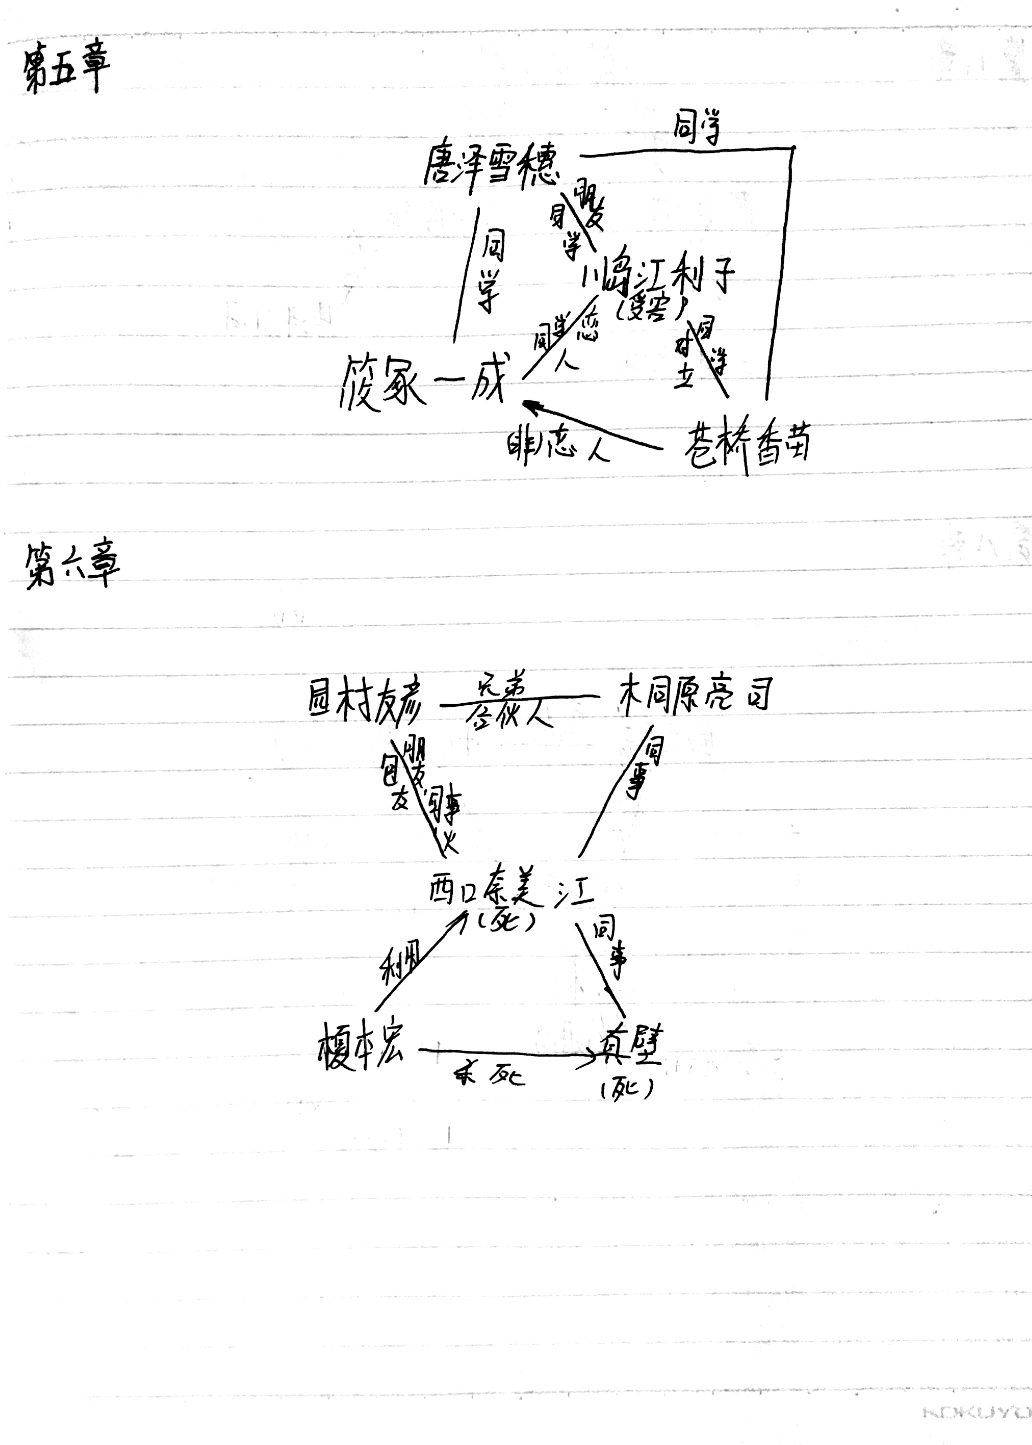 第五章
同学
唐泽雪穗
朋友
同学
同学
川島江利子
(受害)
同学
恋人
同学
对立
筱冢一成
非恋人
苍桥香苗
第六章
园村友彦
兄弟
合伙人
桐原亮司
朋友
同事
同事
西口奈美江
(死)
利用
同事
榎本宏
杀死
真壁
(死)
KOKUYO